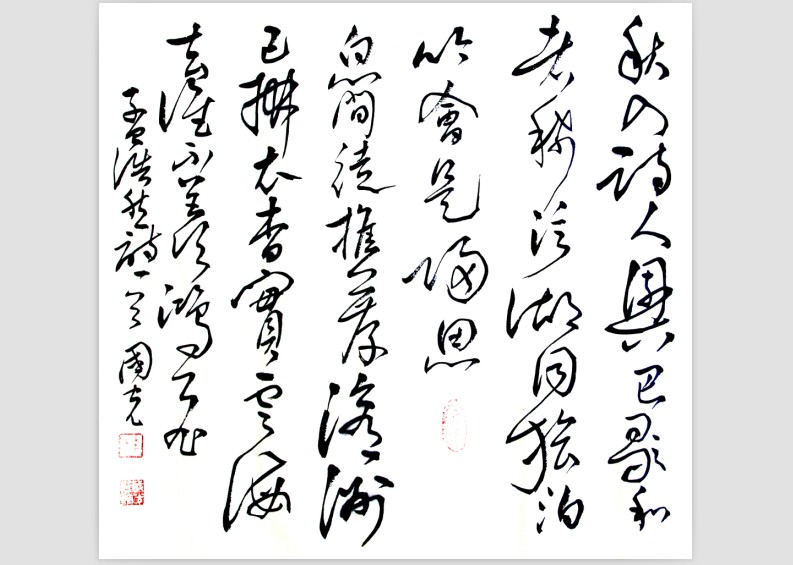 秋入詩人興巴歌和
者稀泛湖同旅泊
吟會是歸思
白簡徒推薦滄洲
已拂衣杳冥雲海
去誰不羡鴻飛
孟浩然詩一首 國克